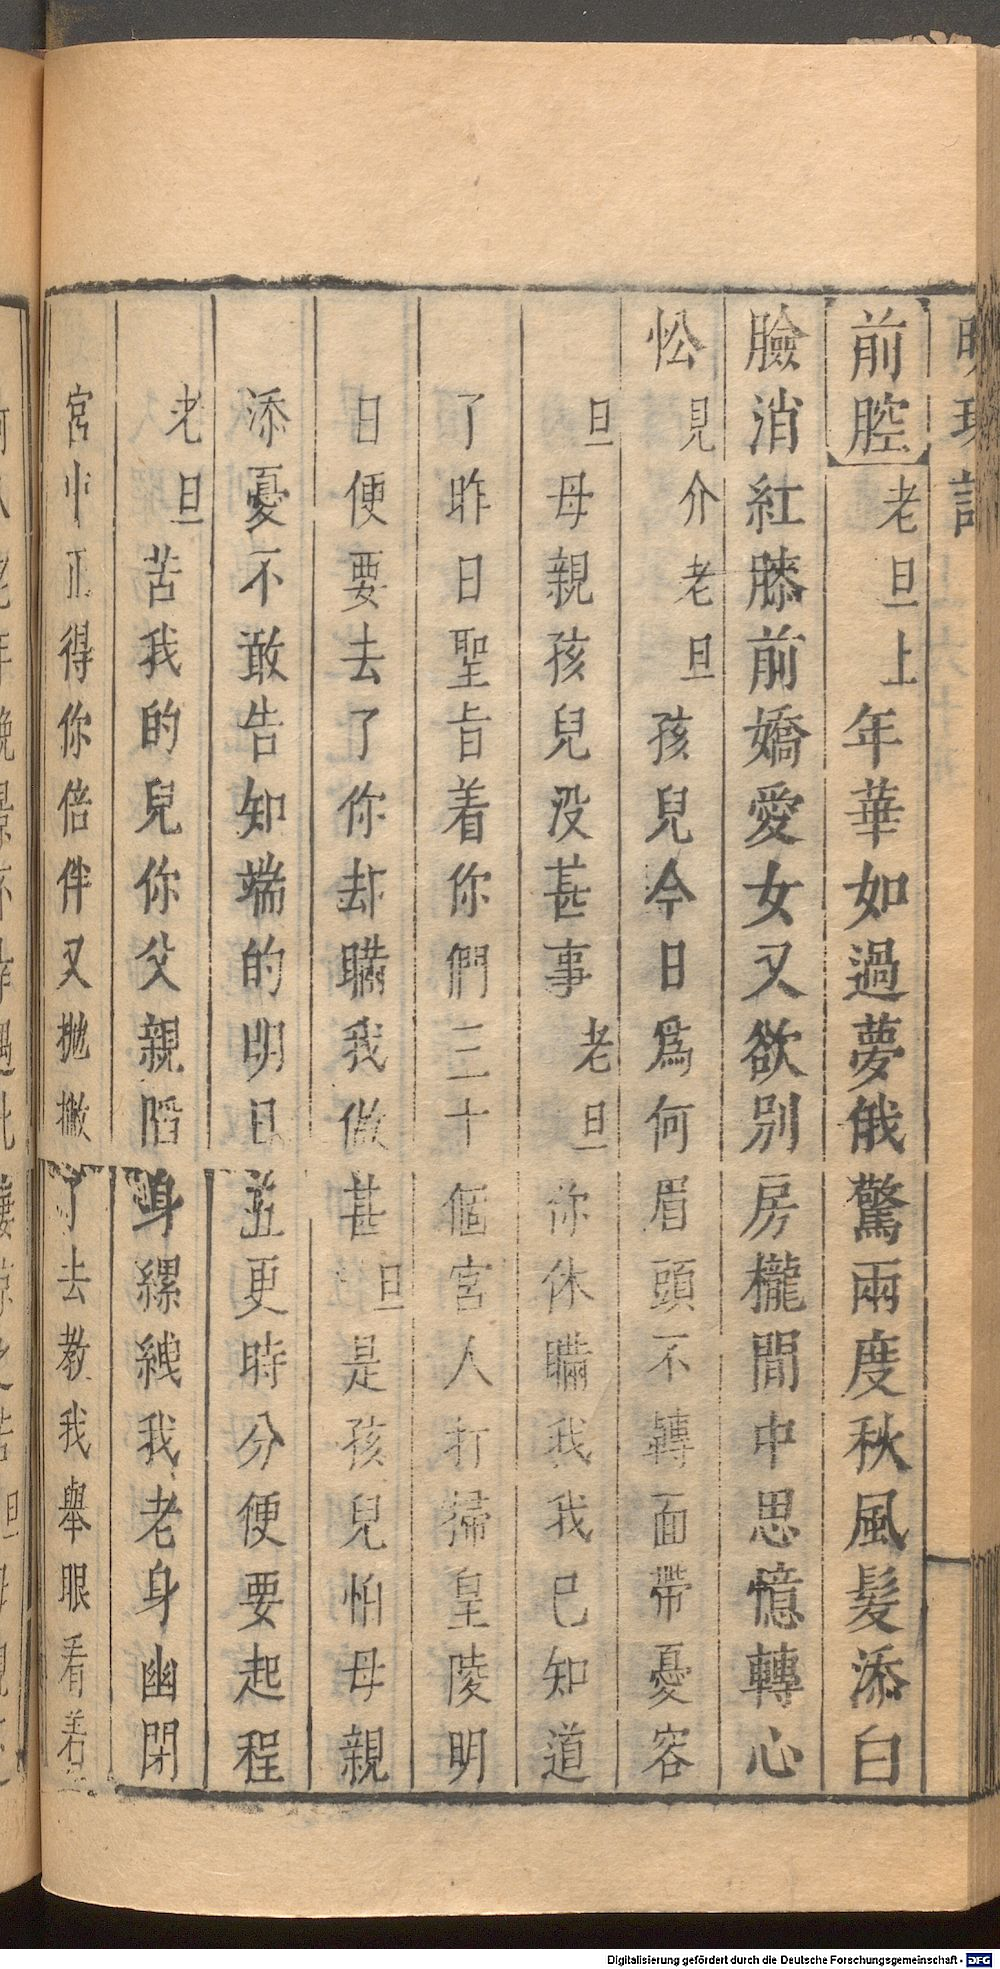 明珠記
前腔老旦上年華如過夢俄驚兩度秋風髮添白
臉消紅膝前嬌愛女又欲別房櫳閒中思憶轉心
忪見介老旦孩兒今日爲何眉頭不轉面帶憂容
旦母親孩兒没甚事老旦你休瞞我我已知道
了昨日聖旨着你們三十個宮人打掃皇陵明
日便要去了你却瞞我做甚旦是孩兒怕母親
添憂不敢告知端的明日五更時分便要起程
老旦苦我的兒你父親陷身縲絏我老身幽閉
宮中正得你倍伴又拋撇了去教我舉眼看着
Digitalisierung gefördert durch die Deutsche Forschungsgemeinschaft - DFG